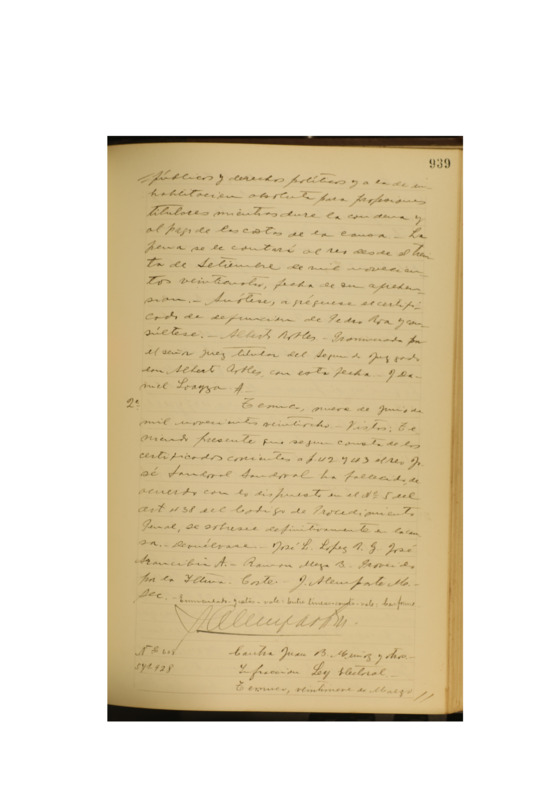 939
públicos y derechos políticos y a la de in-
habilitación absoluta para profesiones
titulares mientras dure la condena y
al pago de las costas de la causa.- La
pena se le contará al reo desde el trein-
ta de Setiembre de mil novecien-
tos veinticuatro, fecha de su aprehen-
sión.- Anótese, agréguese el certifi-
cado de defunción de Pedro Roa y con-
súltese.- Alberto Robles- Pronunciada por
el señor Juez titular del Segundo Juzgado
don Alberto Robles con esta fecha- J. Da-
niel A.-
2a
Temuco, nueve de Junio de
mil novecientos veintiocho.- Vistos: Te-
niendo presente que segun consta de los
certificados corrientes a f 42 y 43 el reo Jo-
sé Sandoval Sandoval ha fallecido, de
acuerdo con lo dispuesto en el No 5 del
art 438 del Codigo de Procedimiento
Penal, se sobresee definitivamente en la cau-
sa.- Devuélvase.- José L. Lopez José
A.- Ramon Meza B. Proveido
por la Iltma. Corte.- J.
Sec.-
Contra Juan B. Muñoz y otros-
Infraccion Ley Electoral.-
Temuco, de Marzo